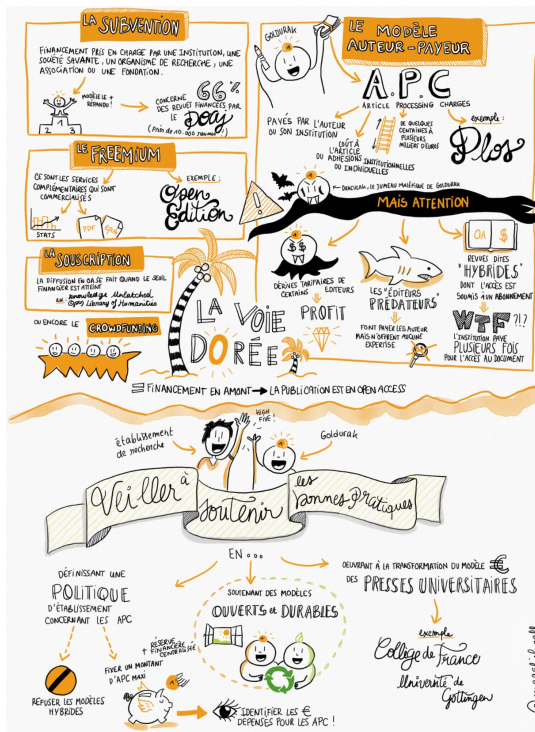 LA SUBVENTION
FINANCEMENT PRIS EN CHARGE PAR UNE INSTITUTION, UNE
SOCIÉTÉ SAVANTE, UN ORGANISME DE RECHERCHE, UNE
ASSOCIATION OU UNE FONDATION.
MODÈLE LE +
RÉPANDU !
1
2
3
CONCERNE 66%
DES REVUES FINANCÉES PAR
LE Doaj
(Près de 10.000 revues !)
LE FREEMIUM
CE SONT LES SERVICES
COMPLÉMENTAIRES QUI SONT
COMMERCIALISÉS
STATS
PDF
EXEMPLE :
Open
Edition
LA SOUSCRIPTION
LA DIFFUSION EN OA SE FAIT QUAND LE SEUIL
FINANCIER EST ATTEINT
ex : Knowledge Unlatched
Open Library of Humanities
OU ENCORE LE CROWDFUNDING
GOLDURAK
LE MODÈLE
AUTEUR-PAYEUR
A.P.C
ARTICLE PROCESSING CHARGES
PAYÉS PAR L'AUTEUR
OU SON INSTITUTION
COÛT À
L'ARTICLE
OU ADHÉSIONS INSTITUTIONNELLES
OU INDIVIDUELLES
DE QUELQUES
CENTAINES À
PLUSIEURS
MILLIERS D'EURO
exemple :
Plos
DRACULAK, LE JUMEAU MALÉFIQUE DE GOLDURAK
MAIS ATTENTION
!
$ $
DÉRIVES TARIFAIRES DE
CERTAINS ÉDITEURS
PROFIT
LES "ÉDITEURS
PRÉDATEURS"
FONT PAYER LES AUTEUR
MAIS N'OFFRENT AUCUNE
EXPERTISE
OA $
REVUES DITES
"HYBRIDES"
DONT L'ACCÈS EST
SOUMIS À UN ABONNEMENT
WTF ?!?
L'INSTITUTION PAYE
PLUSIEURS FOIS
POUR L'ACCÈS AU DOCUMENT
LA VOIE
DORÉE
= FINANCEMENT EN AMONT → LA PUBLICATION EST EN OPEN ACCESS
établissement
de recherche
HIGH
FIVE !
Goldurak
Veiller à
soutenir
les
bonnes pratiques
EN...
DÉFINISSANT UNE
POLITIQUE
D'ÉTABLISSEMENT
CONCERNANT LES APC
REFUSER LES MODÈLES
HYBRIDES
FIXER UN MONTANT
D'APC MAXI
+ RÉSERVE
FINANCIÈRE
CENTRALISÉE
IDENTIFIER LES €
DÉPENSÉS POUR LES APC !
SOUTENANT DES MODÈLES
OUVERTS et DURABLES
OEUVRANT À LA TRANSFORMATION DU MODÈLE €
DES PRESSES UNIVERSITAIRES
exemple
Collège de France
Université de
Gottingen